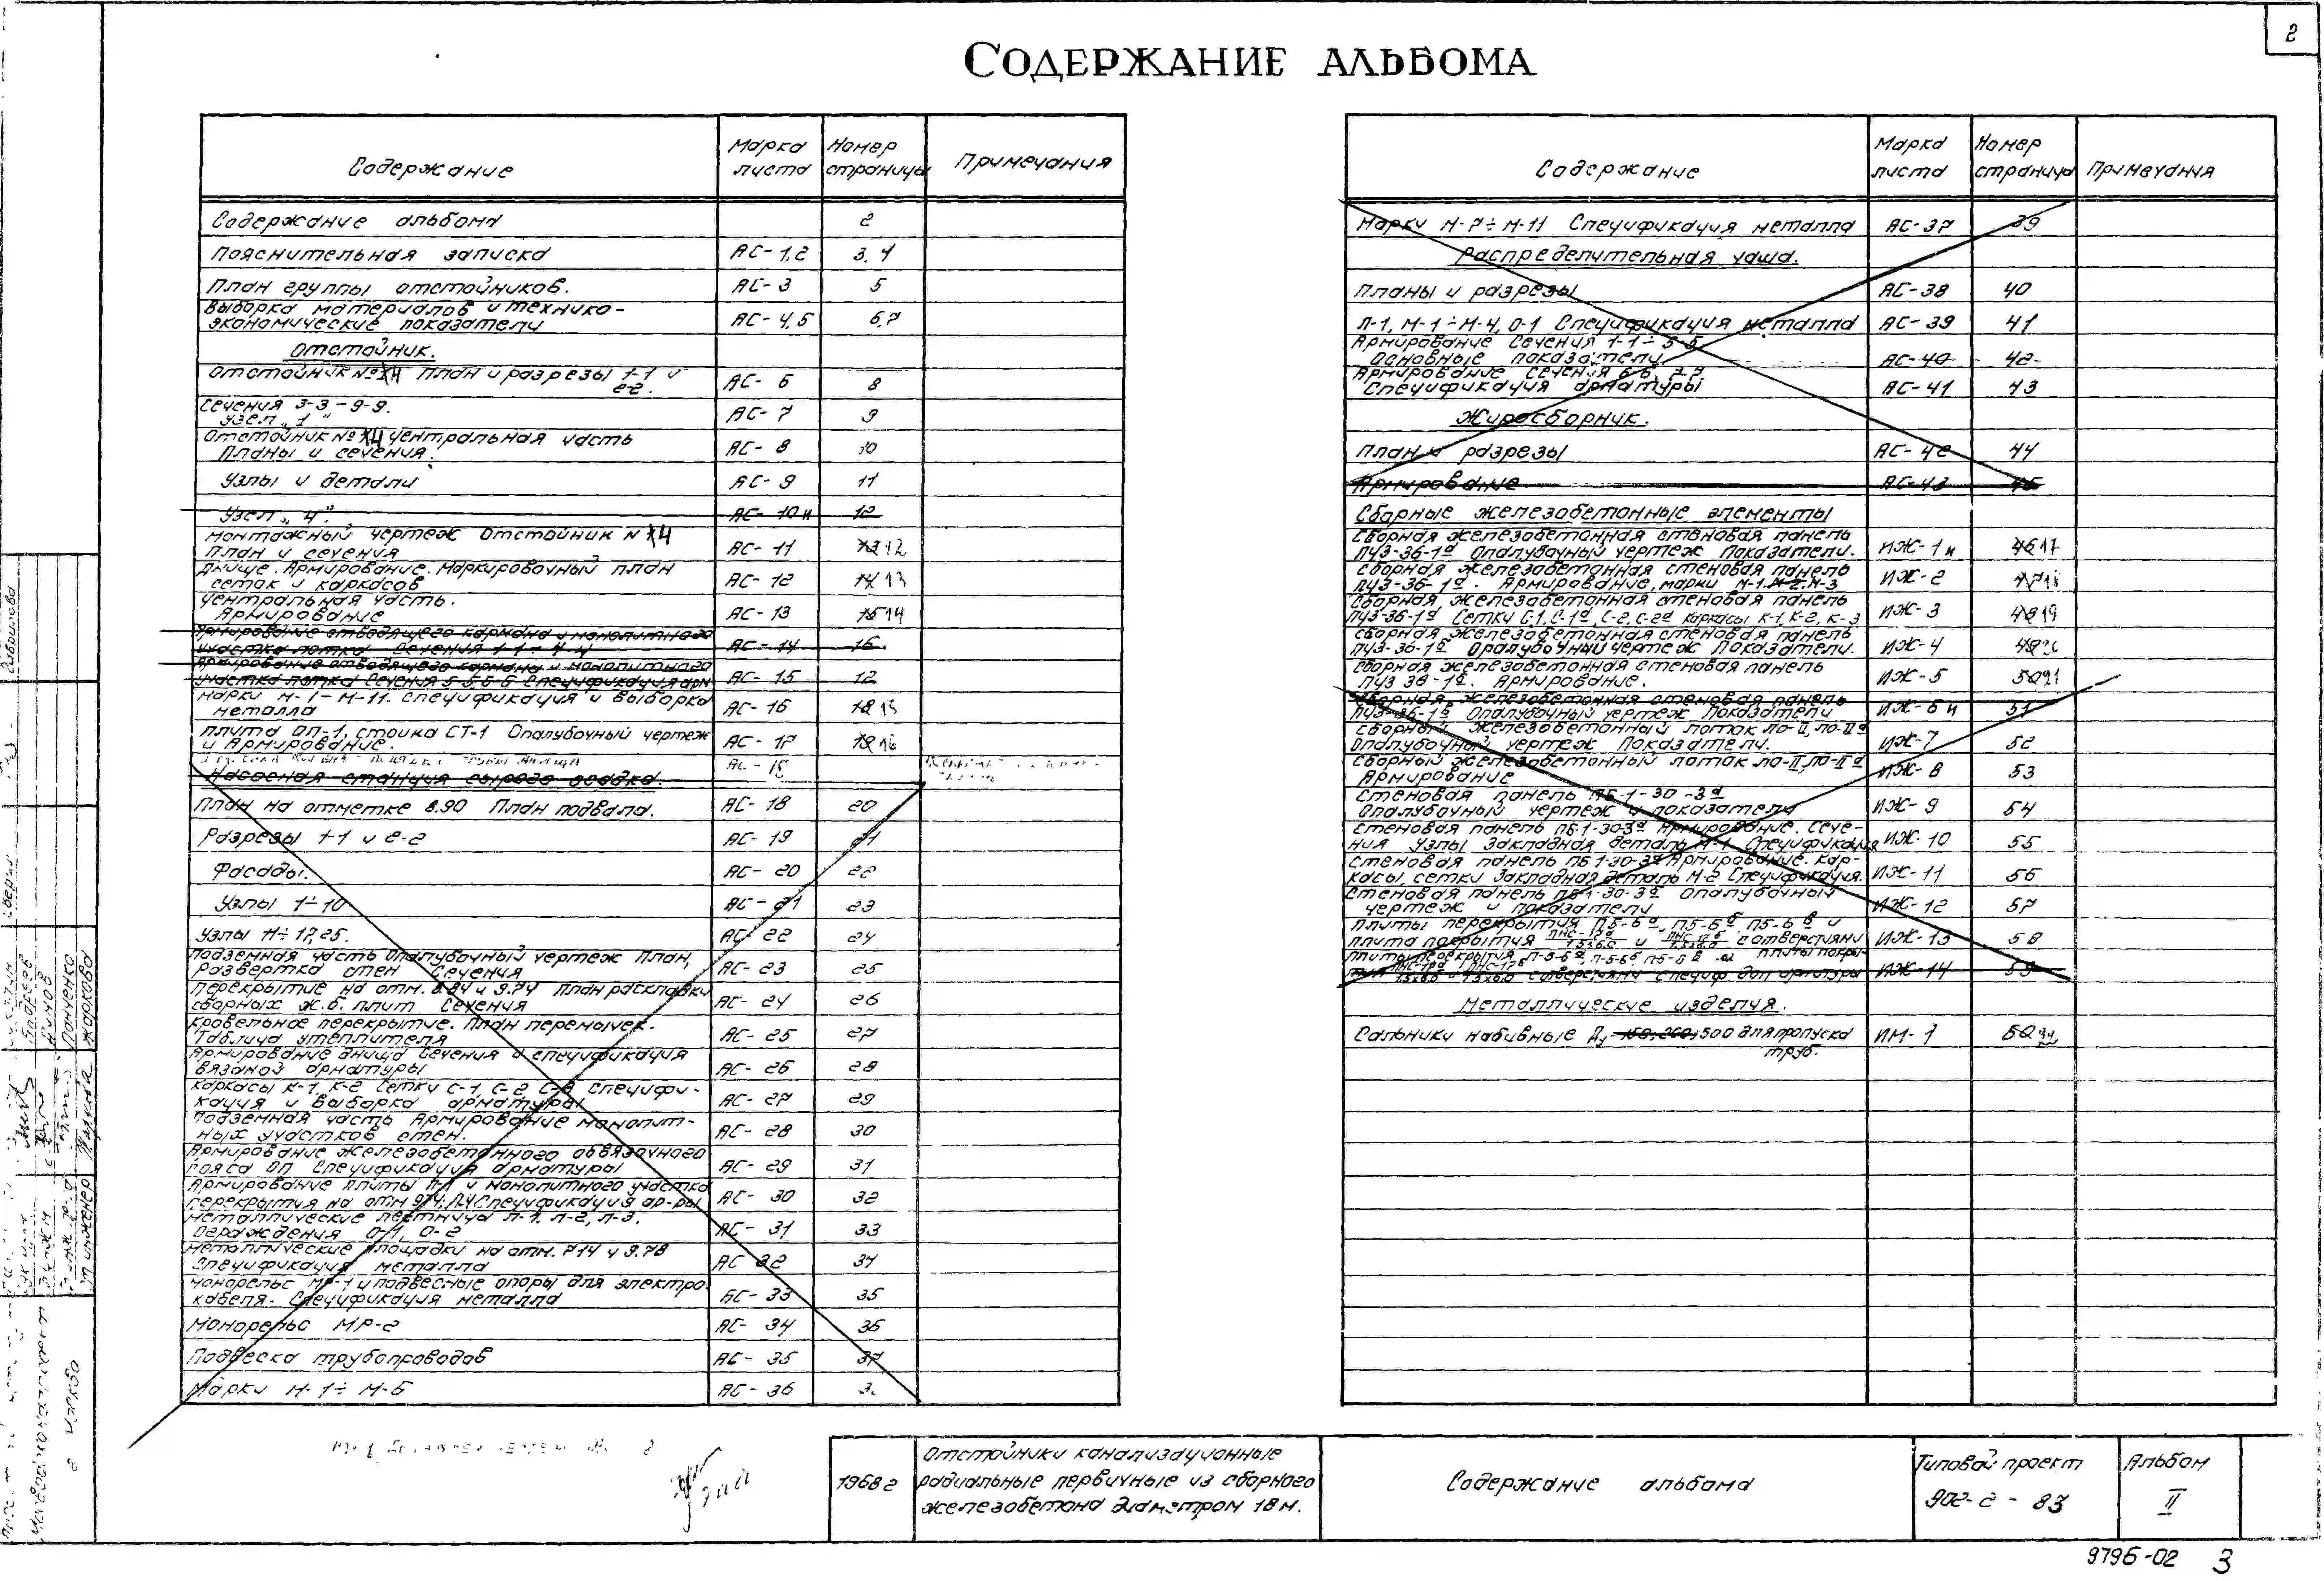 2
СОДЕРЖАНИЕ АЛЬБОМА
Содержание Марка листа Номер страницы Примечания
Содержание альбома 2
Пояснительная записка АС-1,2 3, 4
План группы отстойников. АС-3 5
Выборка материалов и технико-
экономические показатели АС-4,5 6,7
Отстойник.
Отстойник № 4 План и разрезы 1-1 и
2-2. АС-6 8
Сечения 3-3 – 9-9.
Узел „1" АС-7 9
Отстойник № 4 центральная часть
Планы и сечения. АС-8 10
Узлы и детали АС-9 11
Узел „4". АС-10и 12
Монтажный чертеж Отстойник N 4
План и сечения АС-11 12
Днище. Армирование. Маркировочный план
сеток и каркасов АС-12 13
Центральная часть.
Армирование АС-13 14
Армирование отводящего кармана и монолитного
участка лотка Сечения 1-1 ÷ 4-4 АС-14 16
Армирование отводящего кармана и монолитного
участка лотка Сечения 5-5, 6-6 Спецификация арм АС-15 17
Марки М-1 – М-11. Спецификация и выборка
металла АС-16 15
Плита ОП-1, стойка СТ-1 Опалубочный чертеж
и Армирование. АС-17 16
Насосная станция сырого осадка.
План на отметке 8.90 План подвала. АС-18 20
Разрезы 1-1 и 2-2 АС-19 21
Фасады. АС-20 22
Узлы 1÷10 АС-21 23
Узлы 11÷17,25. АС-22 24
Подземная часть Опалубочный чертеж План,
развертка стен Сечения АС-23 25
Перекрытие на отм. 8.94 и 9.74 План раскладки
сборных ж.б. плит Сечения АС-24 26
Кровельное перекрытие. План перемычек.
Таблица утеплителя АС-25 27
Армирование днища Сечения и спецификация
вязаной арматуры АС-26 28
Каркасы К-1, К-2 Сетки С-1, С-2, С-3 Специфи-
кация и выборка арматуры АС-27 29
Подземная часть Армирование монолит-
ных участков стен. АС-28 30
Армирование железобетонного обвязочного
пояса ОП Спецификация арматуры АС-29 31
Армирование плиты П-1 и монолитного участка
перекрытия на отм Спецификация ар-ры АС-30 32
Металлические лестницы Л-1, Л-2, Л-3.
Ограждения О-1, О-2 АС-31 33
Металлические площадки на отм. 7.14 и 9.78
Спецификация металла АС 32 34
Монорельс МР-1 и подвесные опоры для электро
кабеля. Спецификация металла АС-33 35
Монорельс МР-2 АС-34 36
Подвеска трубопроводов АС-35 37
Марки М-1÷ М-6 АС-36
Содержание Марка листа Номер страница Примечания
Марки М-7÷ М-11 Спецификация металла АС-37 39
Распределительная чаша.
Планы и разрезы АС-38 40
Л-1, М-1÷М-4, О-1 Спецификация металла АС-39 41
Армирование Сечения 1-1÷ 5-5
Основные показатели АС-40 42
Армирование Сечения 6-6, 7-7
Спецификация арматуры АС-41 43
Жиросборник.
План и разрезы АС-42 44
Армирование АС-43 45
Сборные железобетонные элементы
Сборная железобетонная стеновая панель
ПЦЗ-36-1а Опалубочный чертеж Показатели. ИЖ-1и 17
Сборная железобетонная стеновая панель
ПЦЗ-36-1а. Армирование, марки М-1, М-2, М-3 ИЖ-2 18
Сборная железобетонная стеновая панель
ПЦЗ-36-1а Сетки С-1, С-1а, С-2, С-2а каркасы К-1, К-2, К-3 ИЖ-3 19
Сборная железобетонная стеновая панель
ПЦЗ-36-1б Опалубочный чертеж Показатели. ИЖ-4 20
Сборная железобетонная стеновая панель
ПЦЗ 36-1б. Армирование. ИЖ-5 21
Сборная железобетонная стеновая панель
ПЦЗ-36-1б Опалубочный чертеж Показатели ИЖ-6и 51
Сборный железобетонный лоток ЛО-II, ЛО-IIа
Опалубочный чертеж Показатели. ИЖ-7 52
Сборный железобетонный лоток ЛО-II, ЛО-IIа
Армирование ИЖ-8 53
Стеновая панель ПБ-1-30-3а
Опалубочный чертеж и показатели ИЖ-9 54
Стеновая панель ПБ-1-30-3а Армирование. Сече-
ния Узлы Закладная деталь М-1 Спецификация ИЖ-10 55
Стеновая панель ПБ 1-30-3а Армирование. Кар-
касы, сетки Закладная деталь М-2 Спецификация. ИЖ-11 56
Стеновая панель ПБ 1-30-3а Опалубочный
чертеж и показатели ИЖ-12 57
Плиты перекрытия П5-6а, П5-6б, П5-6в и
плита покрытия и с отверстиями ИЖ-13 58
Плиты перекрытия П-5-6а, П-5-6б П5-6в и плиты покры-
тия с отверстиями Специф. доп арматуры ИЖ-14 59
Металлические изделия.
Сальники набивные Ду 150, 200, 500 для пропуска
труб. ИМ-1
1968г
Отстойники канализационные
радиальные первичные из сборного
железобетона диаметром 18 м.
Содержание альбома
Типовой проект
902-2-83
Альбом
II
9796-02 3